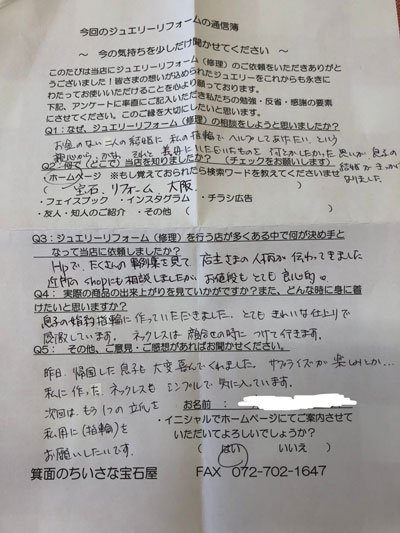 今回のジュエリーリフォームの通信簿
～ 今の気持ちを少しだけ聞かせてください ～
このたびは当店にジュエリーリフォーム（修理）のご依頼をいただきありがと
うございました！皆さまの想いが込められたジュエリーをこれからも永きに
わたってお使いいただけることを心より願っております。
下記、アンケートに率直にご記入いただき私たちの勉強・反省・感謝の要素
にさせてください。このご縁を大切にしたいと思います。
Q1：なぜ、ジュエリーリフォーム（修理）の相談をしようと思いましたか？
お金のない二人の結婚に 私の指輪で ヘルプしてあげたい、という
親心から、かな。それと 義母にいただいたものを 何とかしたかった思いが 息子の
結婚が きっかけ
なりました。
Q2：何で（どこで）当店を知りましたか？ （チェックをお願いします）
・ホームページ ※もし覚えておられたら検索ワードを教えてくださいませ
（ 宝石、リフォーム 大阪 ）
・フェイスブック ・インスタグラム ・チラシ広告
・友人・知人のご紹介 ・その他（ ）
Q3：ジュエリーリフォーム（修理）を行う店が多くある中で何が決め手と
なって当店に依頼しましたか？
Hpで、たくさんの事例集を見て、店主さまの人柄が伝わってきました。
近所のshopにも相談しましたが、お値段も とても良心的。
Q4： 実際の商品の出来上がりを見ていかがですか？また、どんな時に身に着
けたいと思いますか？
息子の婚約指輪に作っていただきました、とてもきれいな仕上りで
感激しています。 ネックレスは 顔合せの時に つけて行きます。
Q5： その他、ご意見・ご感想があればお聞かせください。
昨日、帰国した息子も 大変 喜んでくれました。サプライズが 楽しみとか…
私に作った ネックレスも シンプルで 気に入っています。
次回は、もう1つの立爪を
私用に（指輪）を
お願いしたいです。
お名前：
・イニシャルでホームページにてご案内させて
いただいてよろしいでしょうか？
（ はい いいえ ）
箕面のちいさな宝石屋 FAX 072-702-1647